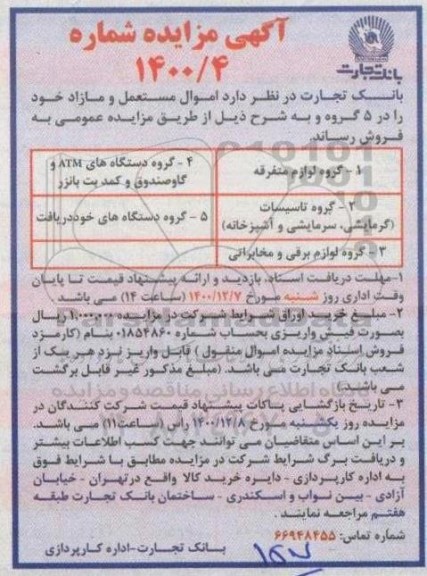 آگهی مزایده شماره
۱۴۰۰/۴
بانک تجارت
بانک تجارت در نظر دارد اموال مستعمل و مازاد خود
را در ۵ گروه و به شرح ذیل از طریق مزایده عمومی به
فروش رساند.
۱- گروه لوازم متفرقه
۴- گروه دستگاه های ATM و
گاوصندوق و کمد بت بانزر
۲- گروه تاسیسات
(گرمایشی، سرمایشی و آشپزخانه)
۵- گروه دستگاه های خوددریافت
۳- گروه لوازم برقی و مخابراتی
۱-مهلت دریافت اسناد، بازدید و ارائه پیشنهاد قیمت تا پایان
وقت اداری روز شنبه مورخ ۱۴۰۰/۱۲/۷ (ساعت ۱۴) می باشد
۲- مبلغ خرید اوراق شرایط شرکت در مزایده ۱,۰۰۰,۰۰۰ ریال
بصورت فیش واریزی بحساب شماره ۰۱۸۵۴۸۶۰ بنام (کارمزد
فروش اسناد مزایده اموال منقول) قابل واریز نزد هر یک از
شعب بانک تجارت می باشد. (مبلغ مذکور غیر قابل برگشت
می باشد.)
۳- تاریخ بازگشایی پاکات پیشنهاد قیمت شرکت کنندگان در
مزایده روز یکشنبه مورخ ۱۴۰۰/۱۲/۸ راس (ساعت۱۱) می باشد.
بر این اساس متقاضیان می توانند جهت کسب اطلاعات بیشتر
و دریافت برگ شرایط شرکت در مزایده مطابق با شرایط فوق
به اداره کارپردازی - دایره خرید کالا واقع در تهران - خیابان
آزادی - بین نواب و اسکندری - ساختمان بانک تجارت طبقه
هفتم مراجعه نمایند.
شماره تماس: ۶۶۹۴۸۴۵۵
بانک تجارت-اداره کارپردازی